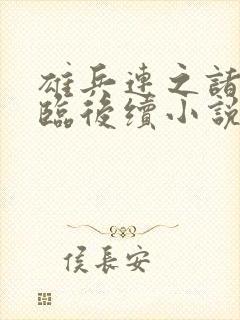 雄兵連之諸
臨後續小說
侯長安